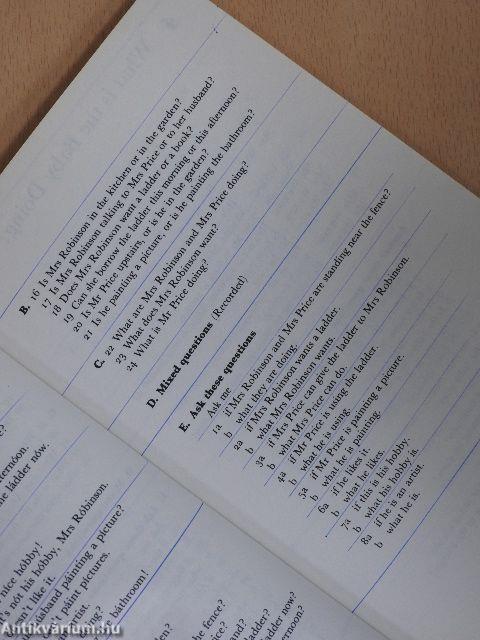 B. 16 Is Mrs Robinson in the kitchen or in the garden?
17 Is Mrs Robinson talking to Mrs Price or to her husband?
18 Does Mrs Robinson want a ladder or a book?
19 Can she borrow the ladder this morning or this afternoon?
20 Is Mr Price upstairs, or is he in the garden?
21 Is he painting a picture, or is he painting the bathroom?
C. 22 What are Mrs Robinson and Mrs Price doing?
23 What does Mrs Robinson want?
24 What is Mr Price doing?
D. Mixed questions (Recorded)
E. Ask these questions
Ask me
1a if Mrs Robinson and Mrs Price are standing near the fence?
b what they are doing.
2a if Mrs Robinson wants a ladder.
b what Mrs Robinson wants.
3a if Mrs Price can give the ladder to Mrs Robinson.
b what Mrs Price can do.
4a if Mr Price is using the ladder.
b what he is using.
5a if Mr Price is painting a picture.
b what he is painting.
6a if he likes it.
b what he likes.
7a if this is his hobby.
b what his hobby is.
8a if he is an artist.
b what he is.
ladder nów.
nice hóbby!
not his hóbby, Mrs Róbinson.
like it.
páinting a picture?
paint pictures.
báthroom!
the fence?
ladder?
ladder now?
Antikvárium.hu